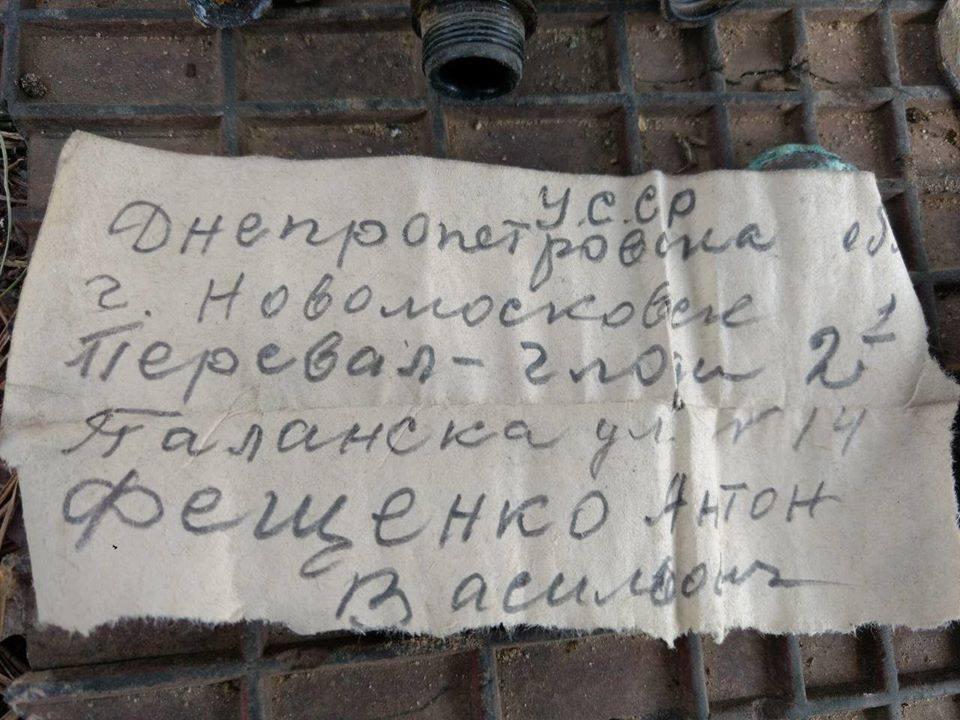 У.С.СР
Днепропетровска обл
г. Новомосковск
Перевал- 2 1
Паланска ул. 14
Фещенко Антон
Васильович